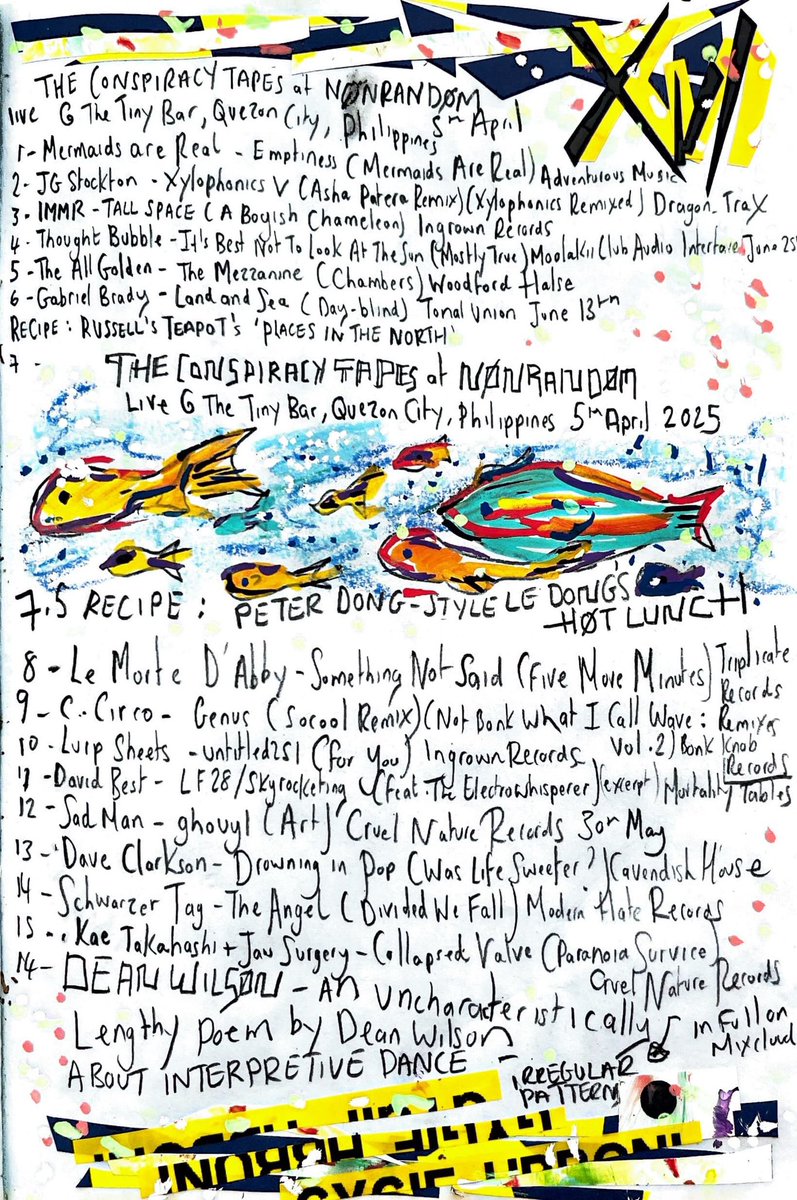 THE CONSPIRACY TAPES at NØNRANDØM
live @ The Tiny Bar, Quezon City, Philippines 5th April
1- Mermaids are Real - Emptiness (Mermaids Are Real) Adventurous Music
2- JG Stockton - Xylophonics V (Asha Patera Remix) (Xylophonics Remixed) Dragon Trax
3. IMMR - TALL SPACE (A Boyish Chameleon) Ingrown Records
4. Thought Bubble - It's Best Not To Look At The Sun (Mostly True) Moolakii Club Audio Interface June 25th
5 - The All Golden - The Mezzanine (Chambers) Woodford Halse
6 - Gabriel Brady - Land and Sea (Day-blind) Tonal Union June 13th
RECIPE: RUSSELL'S TEAPOT'S 'PLACES IN THE NORTH'
7 -
THE CONSPIRACY TAPES at NØNRANDØM
Live @ The Tiny Bar, Quezon City, Philippines 5th April 2025
7.5 RECIPE: PETER DONG-STYLE LE DONG'S HØT LUNCH.
8 - Le Morte D'Abby - Something Not Said (Five More Minutes) Triplicate Records
9 - C. Circo - Genus (Socool Remix) (Not Bonk What I Call Wave: Remixes Vol. 2) Bonk Knob Records
10 - Lurp Sheets - untitled251 (for you) Ingrown Records
11 - David Best - LF28/Skyrocketing (feat. The Electrowhisperer) (excerpt) Mortality Tables
12 - Sad Man - ghouyl (Art) Cruel Nature Records 30th May
13 - Dave Clarkson - Drowning in Pop (Was Life Sweeter?) Cavendish House
14 - Schwarzer Tag - The Angel (Divided We Fall) Modern Hate Records
15 - Kae Takahashi + Jaw Surgery - Collapsed Valve (Paranoia Survice) Cruel Nature Records
14 - DEAN WILSON - An uncharacteristically
Lengthy poem by Dean Wilson
ABOUT INTERPRETIVE DANCE -
in full on Mixcloud
IRREGULAR PATTERNS